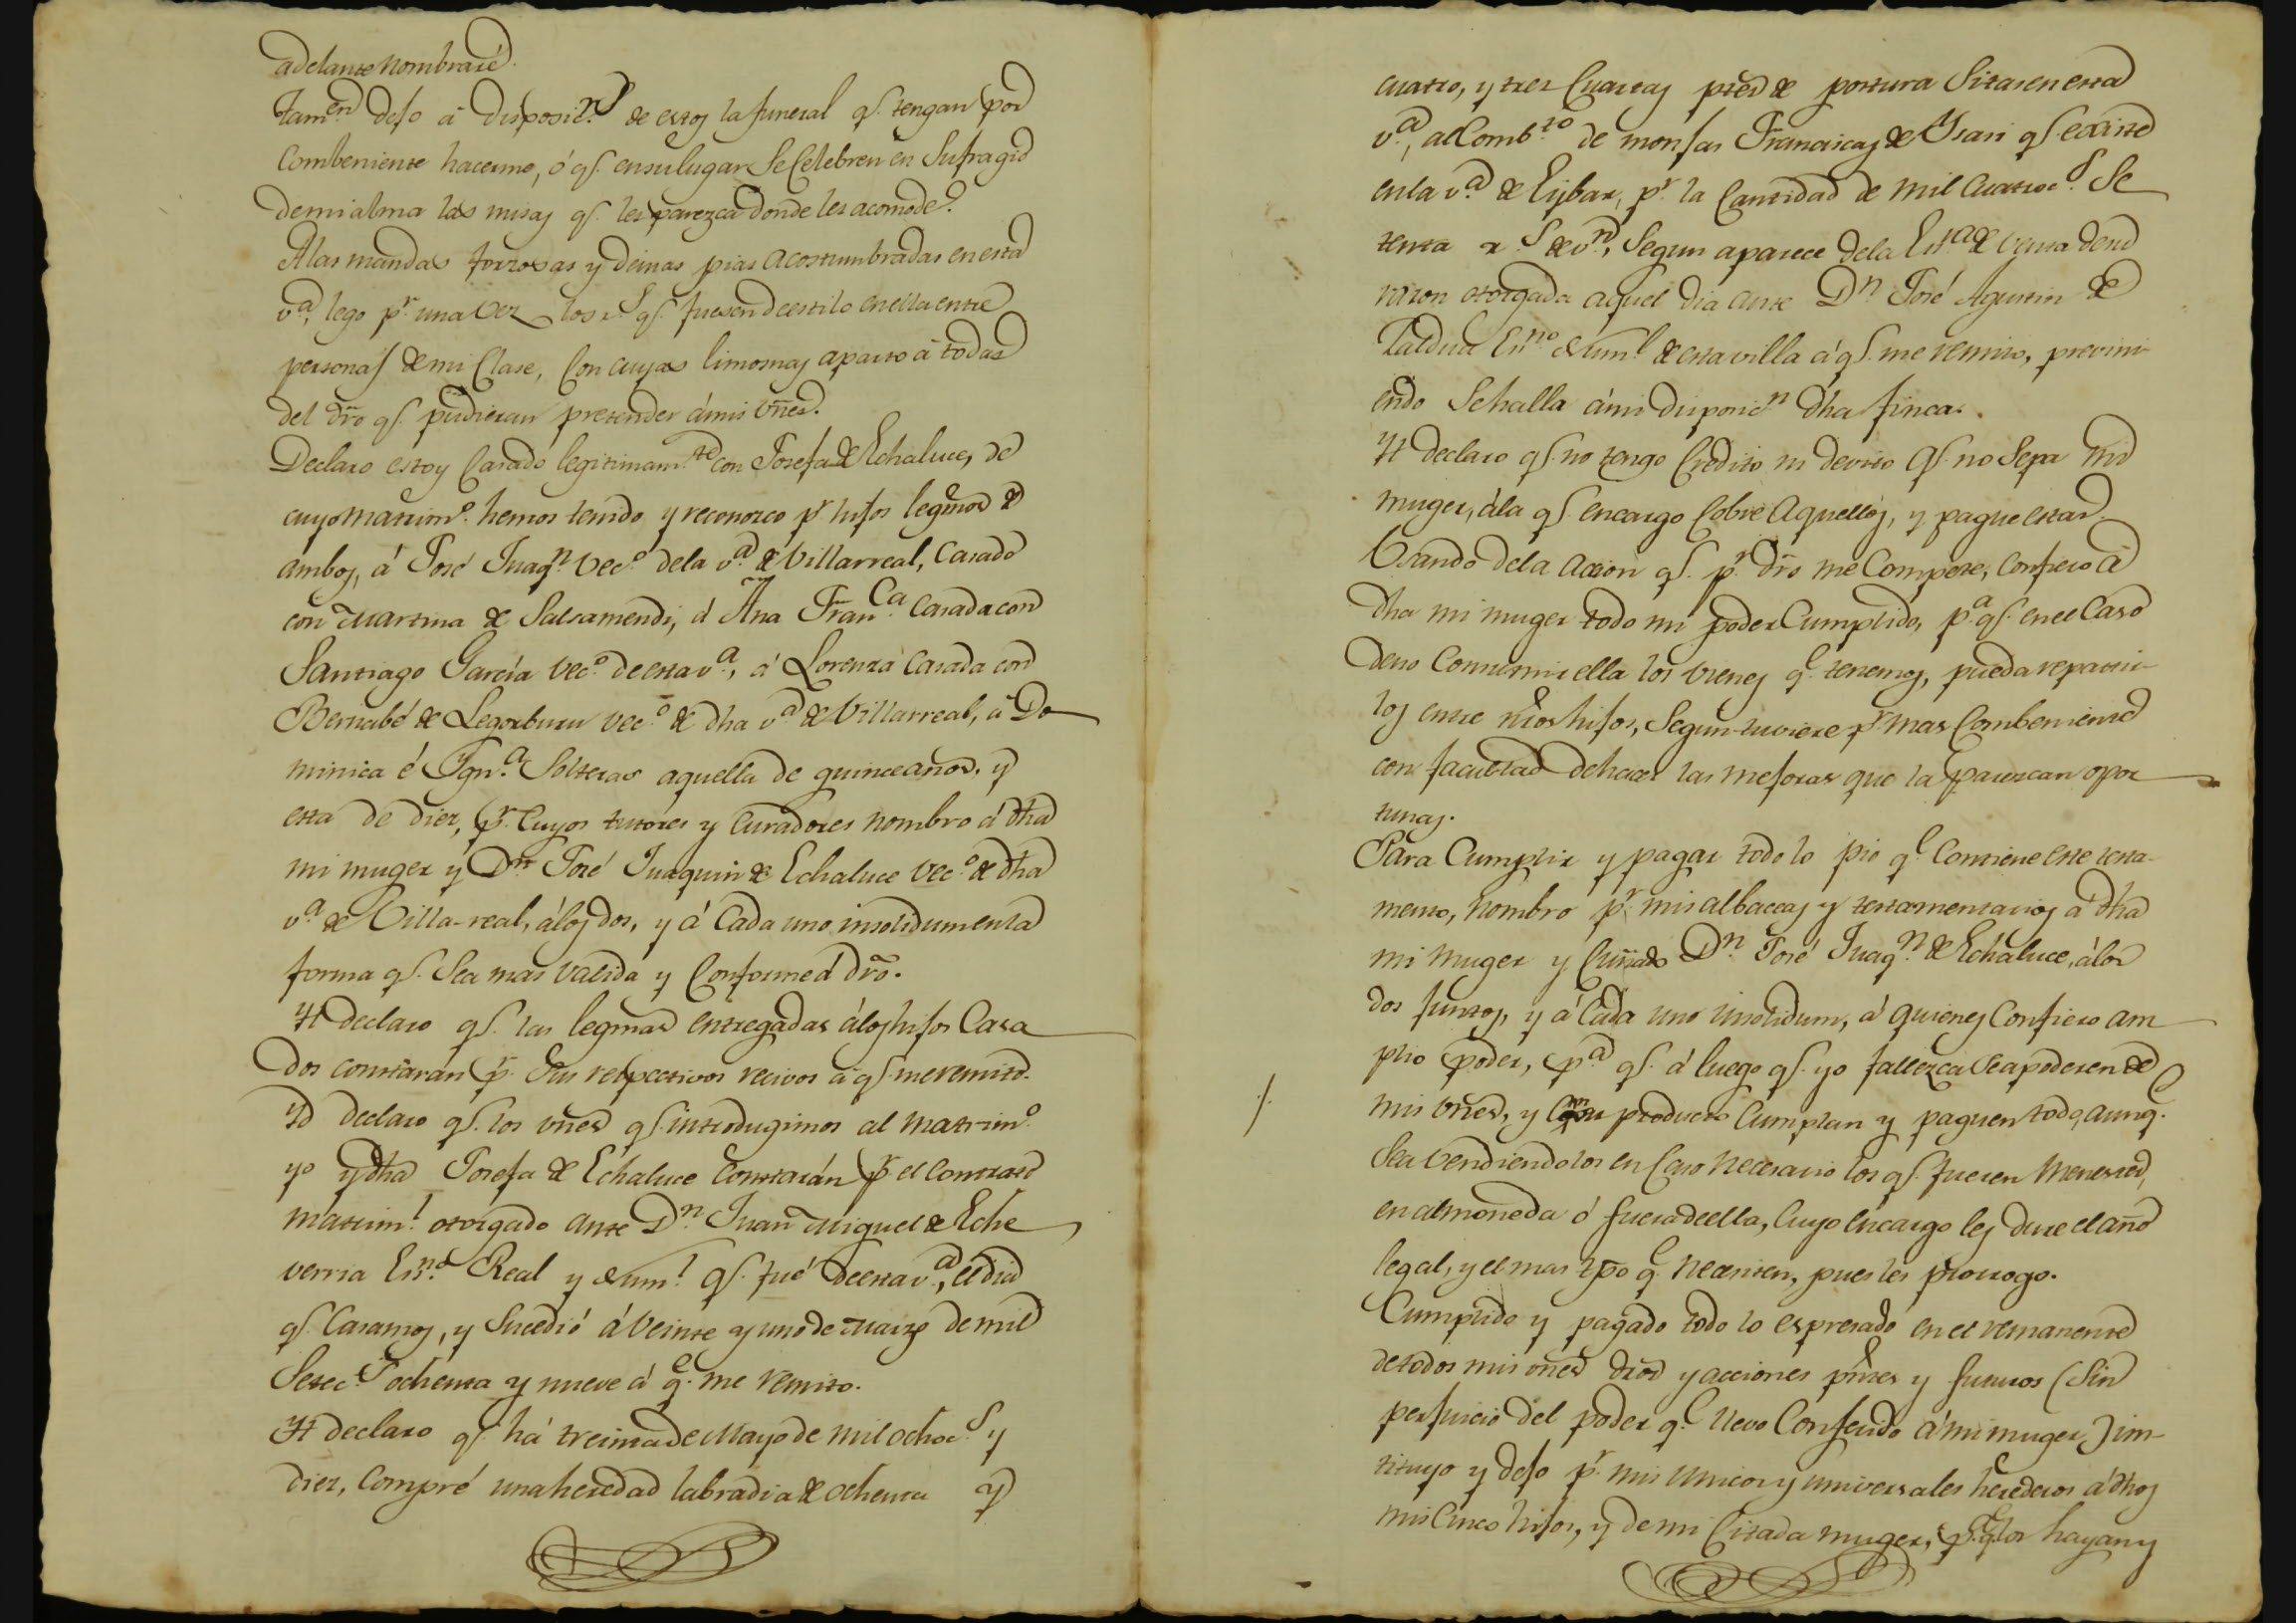 adelante nombraré.
Tamen dejo á disposicn. de estos la funeral qe. tengan por
Combeniente hacerme, ó qe. en su lugar Se Celebren en Sufragio
de mi alma las misas qe. les parezca donde les acomode.
A las mandas forzosas y demas pias acostumbradas en esta
va. lego pr. una vez los rs. qe. fuesen de estilo en ella entre
personas de mi Clase, Con cuyas limosnas aparto á todas
del dro qe. pudieran pretender á mis vnes.
Declaro estoy Casado legitimamte. con Josefa de Echaluce, de
cuyo matrimo. hemos tenido y reconozco pr. hijos legmos de
ambos, á José Juaqn. veco. de la va. de Villarreal, Casado
con Martina de Salsamendi, á Ana Franca. Casada con
Santiago García veco. de esta va., á Lorenza Casada con
Bernabé de Legorburu veco. de dha va. de Villarreal, á Do
minica é Igna. Solteras aquella de quince años, y
esta de diez, pr. Cuyos tutores y Curadores nombro á dha
mi muger y Dn. José Juaquin de Echaluce veco. de dha
va. de Villa-real, á los dos, y á Cada uno insolidum en la
forma qe. Sea mas valida y Conforme á dro.
Yt declaro qe. las legmas entregadas á los hijos Casa
dos constarán pr. Sus respectivos recivos á qe. me remito.
Yd declaro qe. los vnes qe. introdugimos al matrimo.
yo y dha Josefa de Echaluce Constarán pr. el Contrato
matriml. otorgado ante Dn. Juan Miguel de Eche
verria Esno. Real y Numl. qe. fué de esta va., el dia
qe. Casamos, y Sucedió á veinte y uno de Marzo de mil
Setecs. ochenta y nueve á qe. me remito.
Yt declaro qe. há treinta de Mayo de mil ochocs. y
diez, Compré una heredad labradia de ochenta y
cuatro, y tres Cuartas ptes de postura Sitas en esta
va., al Combto. de monjas Franciscas de Isasi qe. existe
en la va. de Eybar, pr. la Cantidad de mil Cuatrocs. Se
tenta rs. de vn., Segun aparece de la Esra. de venta dend
razon otorgada aquel dia ante Dn. José Agustin de
Taldua Esno. Numl. de esta villa á qe. me remito, previni-
endo Se halla á mi disposicn. dha finca.
Yt declaro qe. no tengo Credito ni devito qe. no Sepa mi
muger, á la qe. encargo Cobre Aquellos, y pague estas.
Usando de la accion qe. pr. dro me Compete, Confiero á
dha mi muger todo mi poder Cumplido, pa. qe. en el Caso
de no Consumir ella los vienes qe. tenemos, pueda repartir-
los entre nros hijos, Segun tuviere pr. mas Combeniente
con facultad de hacer las mejoras que la parezcan opor
tunas.
Para Cumplir y pagar todo lo pio qe. Contiene este testa-
mento, nombro pr. mis albaceas y testamentarios á dha
mi muger y Cuñado Dn. José Juaqn. de Echaluce, á los
dos juntos, y á Cada uno insolidum, á quienes Confiero am
plio poder, pa. qe. á luego qe. yo fallezca Se apoderen de
mis vnes, y Con su producto Cumplan y paguen todo, aunq.
Sea vendiendolos en Caso Necesario los qe. fueren Menester,
en almoneda ó fuera de ella, Cuyo encargo les dure el año
legal, y el mas tpo qe. Necesiten, pues les prorrogo.
Cumplido y pagado todo lo espresado en el remanente
de todos mis vnes dros y acciones pntes y futuros (Sin
perjuicio del poder qe. llevo Conferido á mi muger) ins-
tituyo y dejo pr. mis unicos y universales herederos á dhos
mis Cinco hijos, y de mi Citada muger, pa. qe. los hayan y